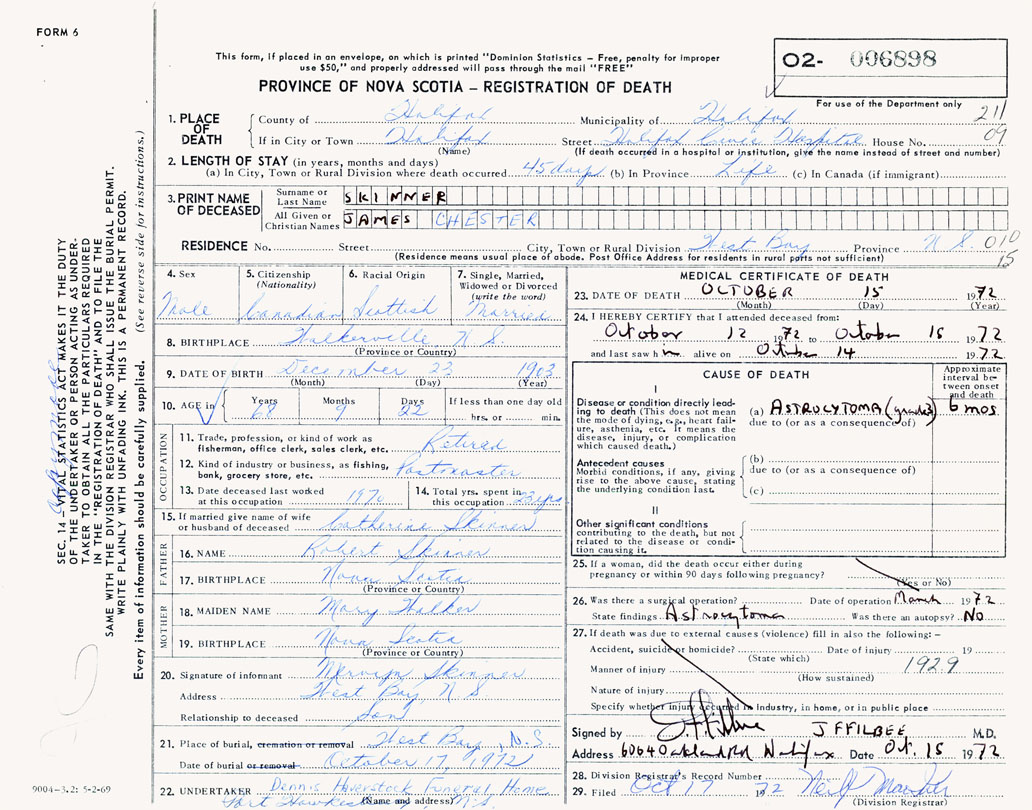 FORM 6
This form, if placed in an envelope, on which is printed "Dominion Statistics – Free, penalty for improper
use $50," and properly addressed will pass through the mail "FREE"
PROVINCE OF NOVA SCOTIA – REGISTRATION OF DEATH
O2- 006898
For use of the Department only
211
09
1. PLACE OF DEATH
County of Halifax Municipality of Halifax
If in City or Town Halifax Street Halifax Civic Hospital House No.
(Name) (If death occurred in a hospital or institution, give the name instead of street and number)
2. LENGTH OF STAY (in years, months and days)
(a) In City, Town or Rural Division where death occurred 45 days (b) In Province Life (c) In Canada (if immigrant)
3. PRINT NAME OF DECEASED
Surname or Last Name SKINNER
All Given or Christian Names JAMES CHESTER
RESIDENCE No. Street City, Town or Rural Division West Bay Province N S 010
(Residence means usual place of abode. Post Office Address for residents in rural parts not sufficient) 15
4. Sex Male
5. Citizenship (Nationality) Canadian
6. Racial Origin Scottish
7. Single, Married, Widowed or Divorced (write the word) Married
8. BIRTHPLACE Walkerville N S.
(Province or Country)
9. DATE OF BIRTH December 23 1903
(Month) (Day) (Year)
10. AGE in Years 68 Months 9 Days 22 If less than one day
hrs. or min.
OCCUPATION
11. Trade, profession, or kind of work as
fisherman, office clerk, sales clerk, etc. Retired
12. Kind of industry or business, as fishing,
bank, grocery store, etc. Postmaster
13. Date deceased last worked
at this occupation 1970
14. Total yrs. spent in
this occupation yrs
15. If married give name of wife
or husband of deceased Catherine Skinner
FATHER
16. NAME Robert Skinner
17. BIRTHPLACE Nova Scotia
(Province or Country)
MOTHER
18. MAIDEN NAME Mary Walker
19. BIRTHPLACE Nova Scotia
(Province or Country)
20. Signature of informant Mervyn Skinner
Address West Bay, N S
Relationship to deceased Son
21. Place of burial, cremation or removal West Bay, N.S
Date of burial or removal October 17, 1972
22. UNDERTAKER Dennis Haverstock Funeral Home
(Name and address) Port Hawkesbury N.S.
MEDICAL CERTIFICATE OF DEATH
23. DATE OF DEATH OCTOBER 15 1972
(Month) (Day) (Year)
24. I HEREBY CERTIFY that I attended deceased from:
October 12 1972 to October 15 1972
and last saw him alive on October 14 1972
CAUSE OF DEATH
Approximate interval between onset and death
I
Disease or condition directly leading to death (This does not mean the mode of dying, e.g., heart failure, asthenia, etc. It means the disease, injury, or complication which caused death.)
(a) ASTROCYTOMA (grade 3) 6 mos
due to (or as a consequence of)
Antecedent causes
Morbid conditions, if any, giving rise to the above cause, stating the underlying condition last.
(b)
due to (or as a consequence of)
(c)
II
Other significant conditions
contributing to the death, but not related to the disease or condition causing it.
25. If a woman, did the death occur either during
pregnancy or within 90 days following pregnancy?
(Yes or No)
26. Was there a surgical operation? Date of operation March 1972
State findings Astrocytoma Was there an autopsy? No
27. If death was due to external causes (violence) fill in also the following: –
Accident, suicide or homicide? Date of injury 19
(State which)
Manner of injury 192.9
(How sustained)
Nature of injury
Specify whether injury occurred in Industry, in home, or in public place
Signed by J F FILBEE M.D.
Address 6064 Oakland Rd Halifax Date Oct. 15 1972
28. Division Registrar's Record Number
29. Filed Oct 17 1972
(Division Registrar)
SEC. 14 – VITAL STATISTICS ACT MAKES IT THE DUTY
OF THE UNDERTAKER OR PERSON ACTING AS UNDER-
TAKER TO OBTAIN ALL THE PARTICULARS REQUIRED
IN THE "REGISTRATION OF DEATH" AND TO FILE THE
SAME WITH THE DIVISION REGISTRAR WHO SHALL ISSUE THE BURIAL PERMIT.
WRITE PLAINLY WITH UNFADING INK. THIS IS A PERMANENT RECORD.
Every item of information should be carefully supplied. (See reverse side for instructions.)
9004-3.2: 5-2-69